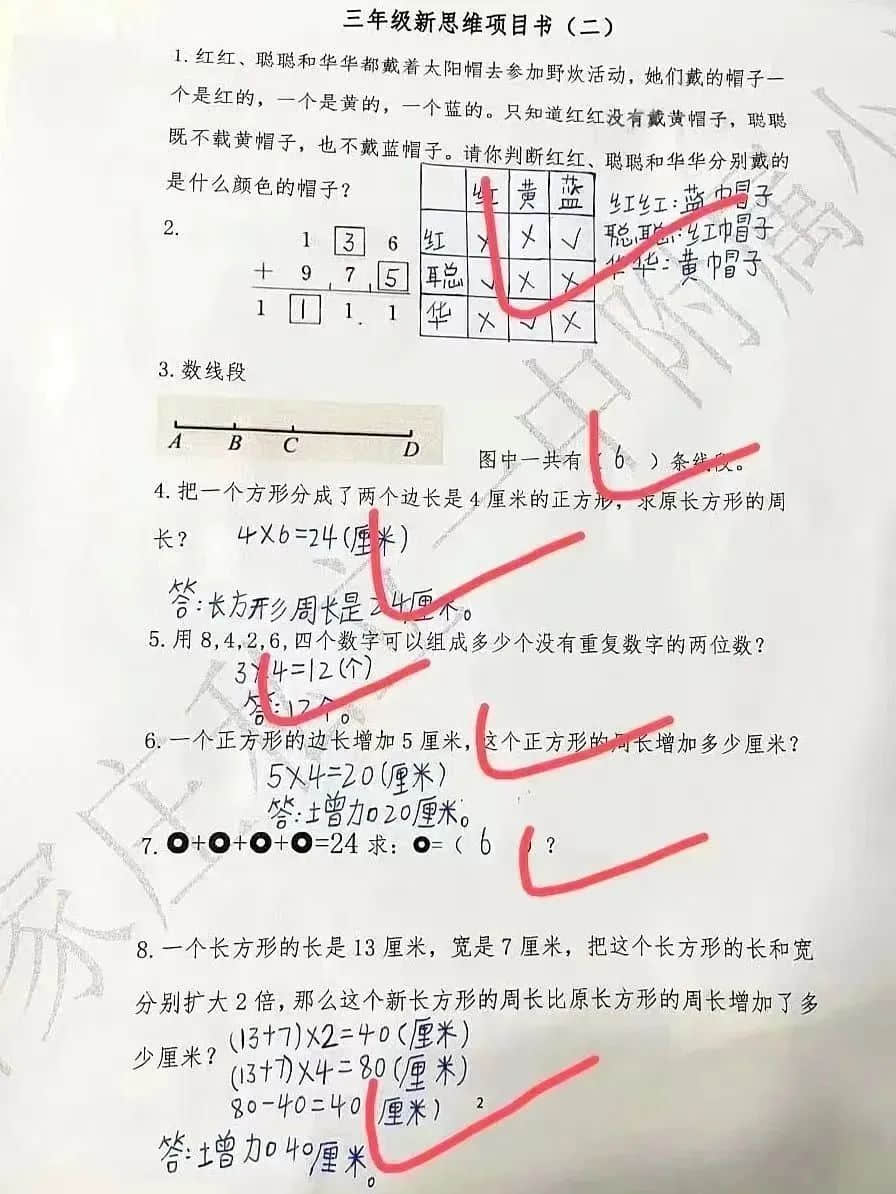 三年级新思维项目书（二）
1. 红红、聪聪和华华都戴着太阳帽去参加野炊活动，她们戴的帽子一
个是红的，一个是黄的，一个蓝的。只知道红红没有戴黄帽子，聪聪
既不载黄帽子，也不戴蓝帽子。请你判断红红、聪聪和华华分别戴的
是什么颜色的帽子？
红 黄 蓝
红 × × ✓
聪 ✓ × ×
华 × ✓ ×
红红:蓝帽子
聪聪:红帽子
华华:黄帽子
2.
1 3 6
+ 9 7 5
1 1 1 1
3. 数线段
A B C D
图中一共有（6）条线段。
4. 把一个方形分成了两个边长是 4 厘米的正方形，求原长方形的周
长？ 4×6=24(厘米)
答:长方形周长是24厘米。
5. 用 8,4,2,6,四个数字可以组成多少个没有重复数字的两位数？
3×4=12(个)
答:12个。
6. 一个正方形的边长增加 5 厘米，这个正方形的周长增加多少厘米？
5×4=20(厘米)
答:增加20厘米。
7. O+O+O+O=24 求：O=（6）？
8. 一个长方形的长是 13 厘米，宽是 7 厘米，把这个长方形的长和宽
分别扩大 2 倍，那么这个新长方形的周长比原长方形的周长增加了多
少厘米？ (13+7)×2=40(厘米)
(13+7)×4=80(厘米)
80-40=40(厘米) 2
答:增加40厘米。